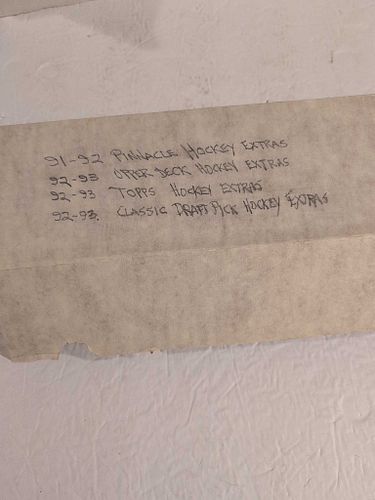 91-92 PINNACLE HOCKEY EXTRAS
92-93 UPPER DECK HOCKEY EXTRAS
92-93 TOPPS HOCKEY EXTRAS
92-93. CLASSIC DRAFT PICK HOCKEY EXTRAS